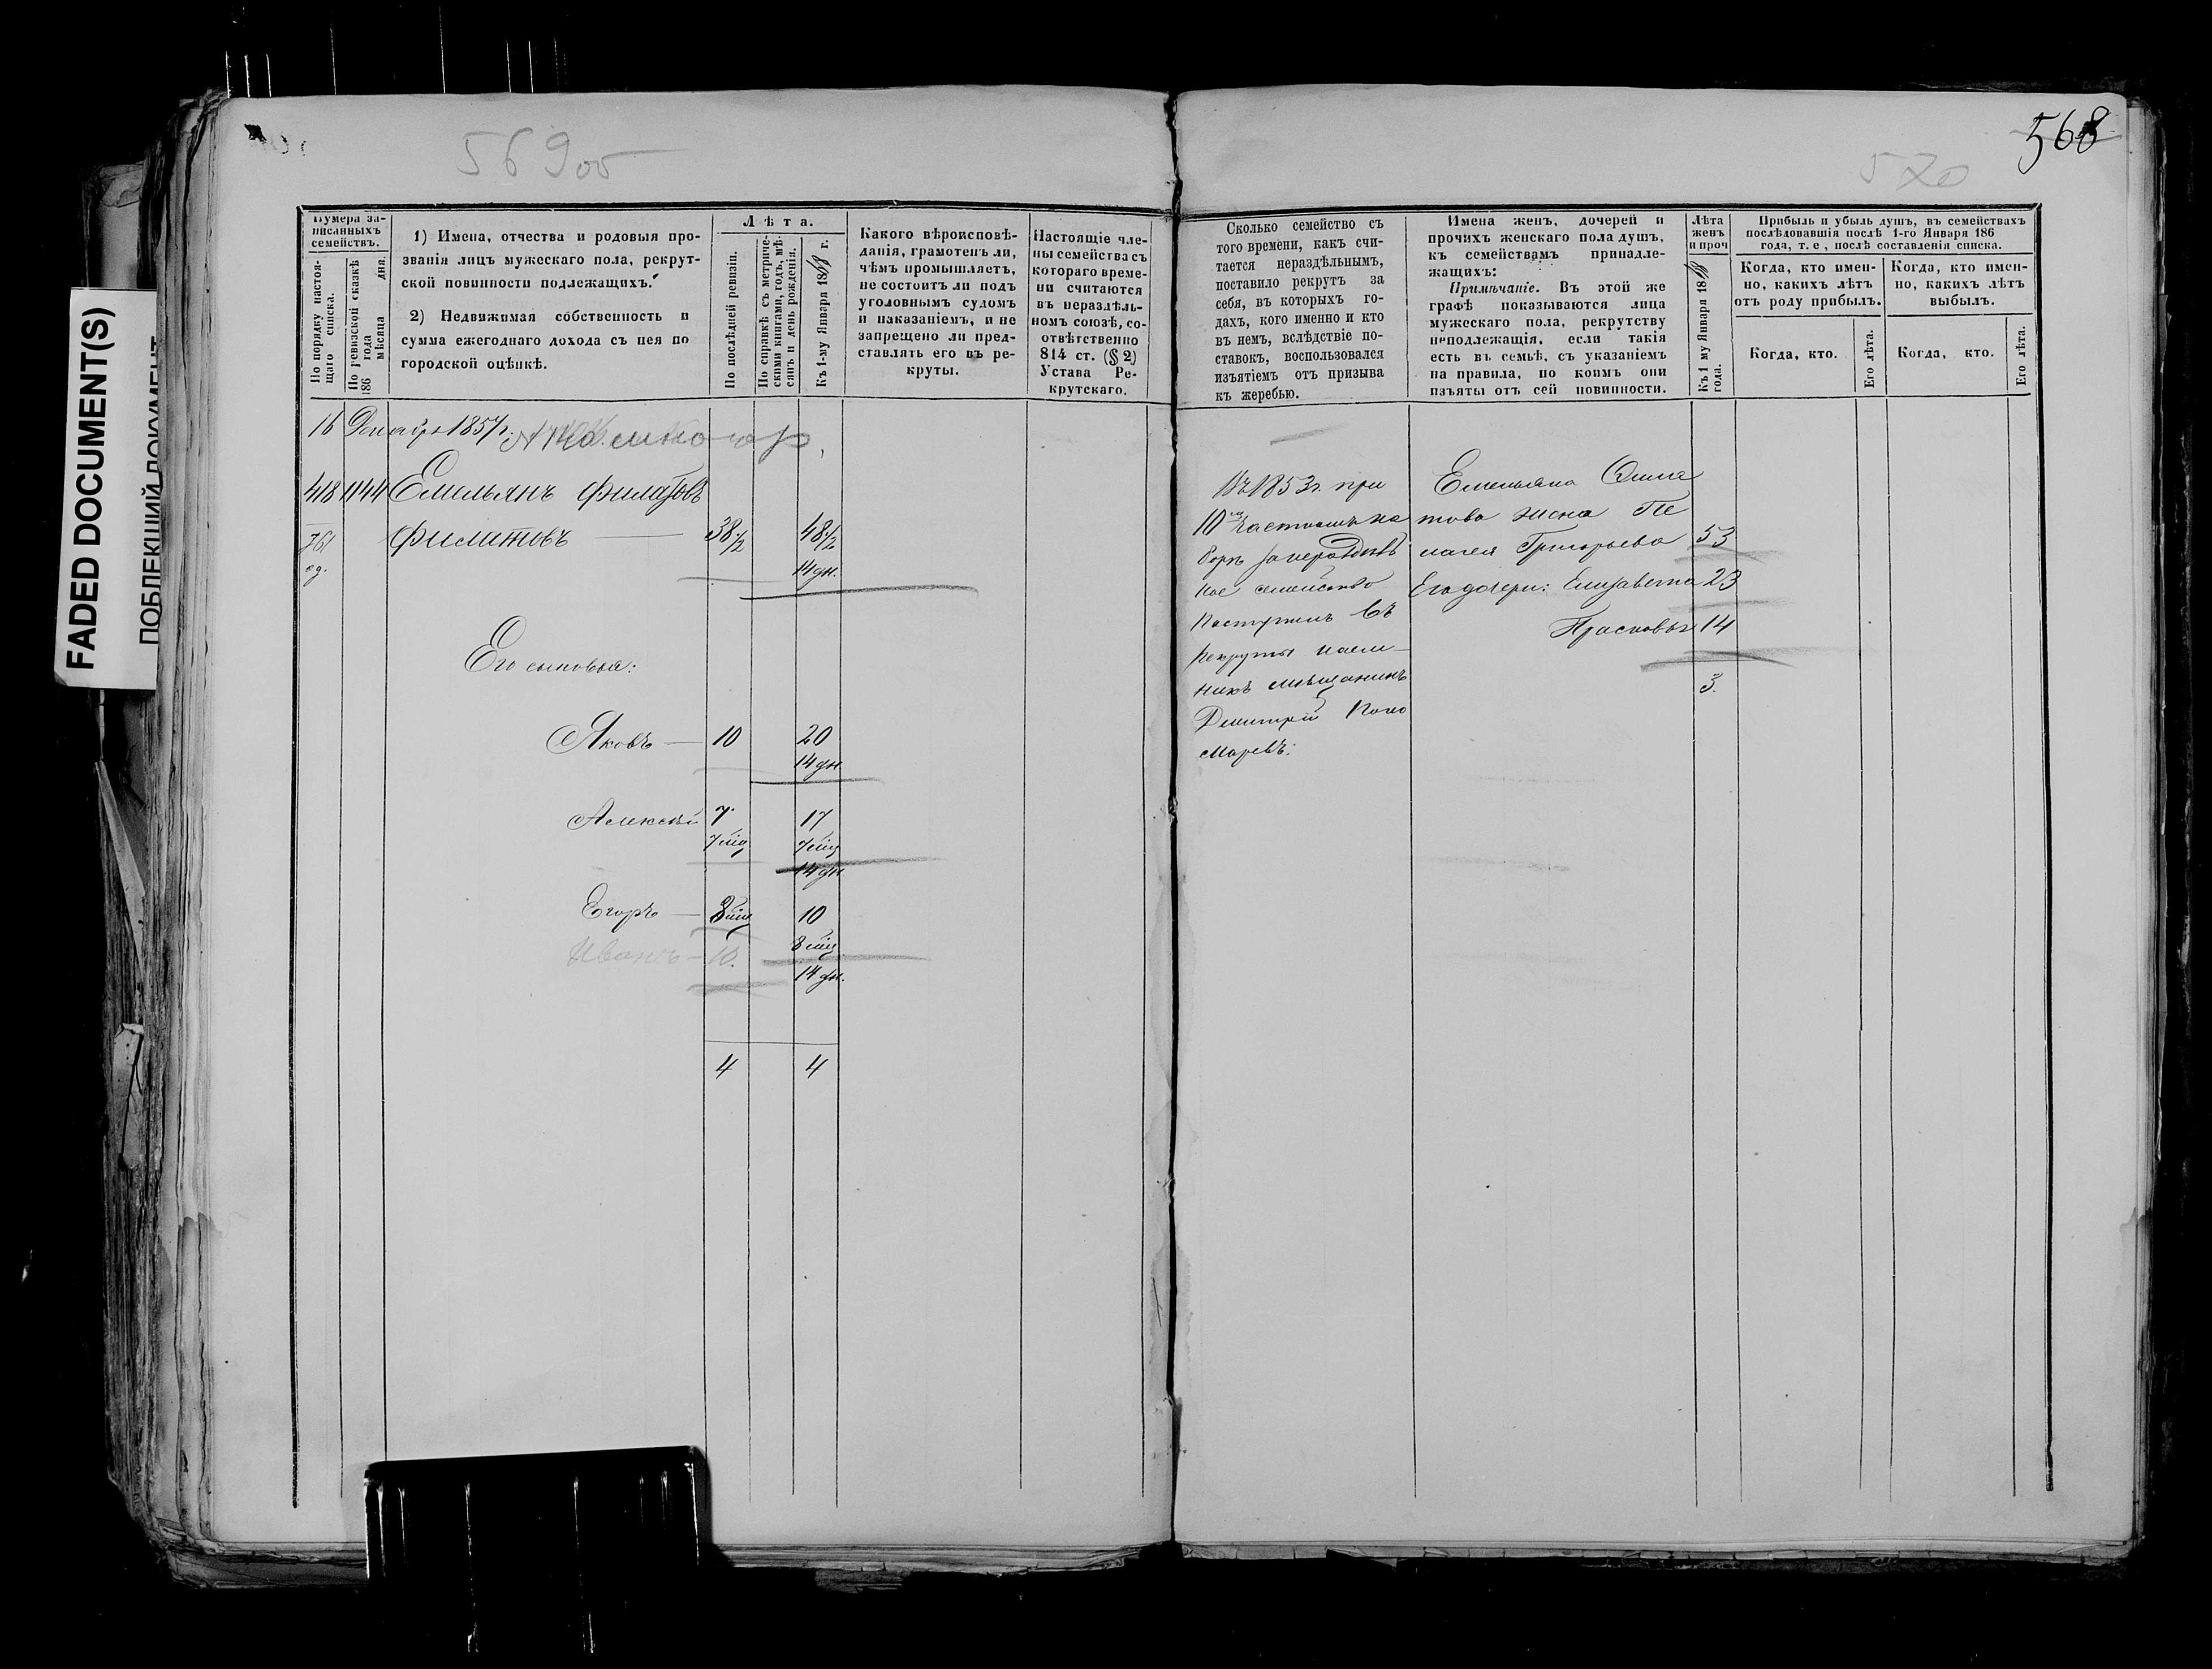 568
569 об
570
FADED DOCUMENT(S)
Нумера за-
писанныхъ
семействъ.
По порядку настоя-
щаго списка.
По ревизской сказкѣ
186 года
мѣсяца дня.
1) Имена, отчества и родовыя про-
званія лицъ мужескаго пола, рекрут-
ской повинности подлежащихъ.
2) Недвижимая собственность и
сумма ежегоднаго дохода съ нея по
городской оцѣнкѣ.
Лѣта.
По послѣдней ревизіи.
По справкѣ съ метриче-
скими книгами, годъ, мѣ-
сяцъ и день рожденія.
Къ 1-му Января 1868 г.
Какого вѣроисповѣ-
данія, грамотенъ ли,
чѣмъ промышляетъ,
не состоитъ ли подъ
уголовнымъ судомъ
и наказаніемъ, и не
запрещено ли пред-
ставлять его въ ре-
круты.
Настоящіе чле-
ны семейства съ
котораго време-
ни считаются
въ нераздѣль-
номъ союзѣ, со-
отвѣтственно
814 ст. (§ 2)
Устава Ре-
крутскаго.
16 Декабря 1857 г.
418 1144 Емельянъ Филатовъ
Филатовъ — 38 1/2 48 1/2
761
14 дн.
Его сыновья:
Яковъ — 10 20
14 дн
Алексѣй 7 17
7 мѣс 7 мѣс
14 дн
Егоръ — 8 мѣс 10
8 мѣс
Иванъ — 10.
14 дн.
4 4
Сколько семейство съ
того времени, какъ счи-
тается нераздѣльнымъ,
поставило рекрутъ за
себя, въ которыхъ го-
дахъ, кого именно и кто
въ немъ, вслѣдствіе по-
ставокъ, воспользовался
изъятіемъ отъ призыва
къ жеребью.
Имена женъ, дочерей и
прочихъ женскаго пола душъ,
къ семействамъ принадле-
жащихъ:
Примѣчаніе. Въ этой же
графѣ показываются лица
мужескаго пола, рекрутству
неподлежащія, если такія
есть въ семьѣ, съ указаніемъ
на правила, по коимъ они
изъяты отъ сей повинности.
Лѣта
женъ
и проч
Къ 1 му Января 1868
года.
Прибыль и убыль душъ, въ семействахъ
послѣдовавшія послѣ 1-го Января 186
года, т. е., послѣ составленія списка.
Когда, кто имен-
но, какихъ лѣтъ
отъ роду прибылъ.
Когда, кто имен-
но, какихъ лѣтъ
выбылъ.
Когда, кто.
Его лѣта.
Когда, кто.
Его лѣта.
Въ 1853 г. при
10 частномъ на
борѣ
ное семейство
поступилъ въ
рекруты наем-
никъ мѣщанинъ
Дмитрій Поно
маревъ:
Емельяна Фила
това жена Пе
лагея Григорьева 53
Его дочери: Елизавета 23
Прасковья 14
3.